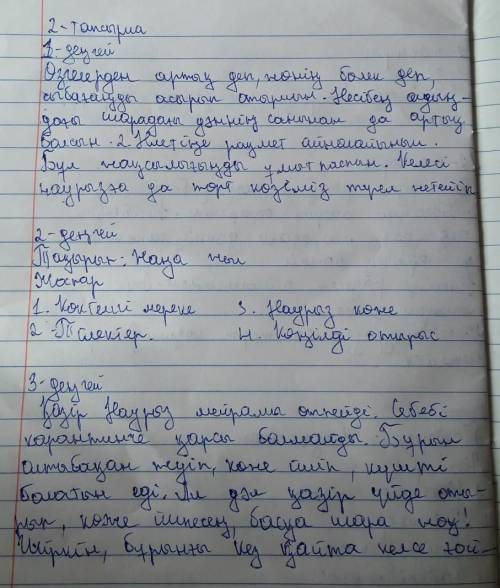 2-тапсырма
1-деңгей
Өзгелерден артық деп, жөнің бөлек деп,
сыбағаңды асырып отырмын. Несібең алдың-
дағы шарадағы дәннің санынан да артық
болсын. 2. Ниетіңе рахмет айналайыным.
Бұл жақсылығыңды ұмытпаспын. Келесі
наурызға да төрт көзіміз түгел жетейік
2-деңгей
Тақырып: Жаңа жыл
Жоспар
1. Көктемгі мереке 3. Наурыз көже
2. Тілектер. 4. Көңілді отырыс
3-деңгей
Қазір Наурыз мейрамы өтпейді. Себебі
карантинге қарсы болмайды. Бұрын
алтыбақан теуіп, көже ішіп, күшті
болатын еді. Ал дәл қазір үйде оты-
рып, көже ішпесең, басқа шара жоқ!
Шіркін, бұрынғы кез қайта келсе ғой-